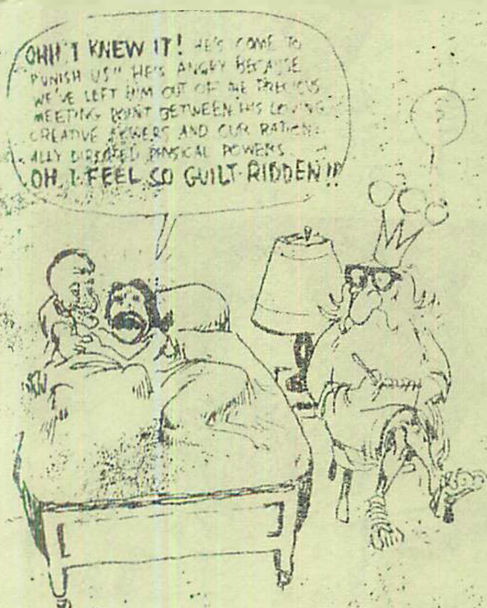 OHH! I KNEW IT! HE'S COME TO
"PUNISH US" HE'S ANGRY BECAUSE
WE'VE LEFT HIM OUT OF THE PRECIOUS
MEETING POINT BETWEEN HIS LOVING
CREATIVE POWERS AND OUR RATION-
ALLY DIRECTED PHYSICAL POWERS
OH, I FEEL SO GUILT-RIDDEN!!
?